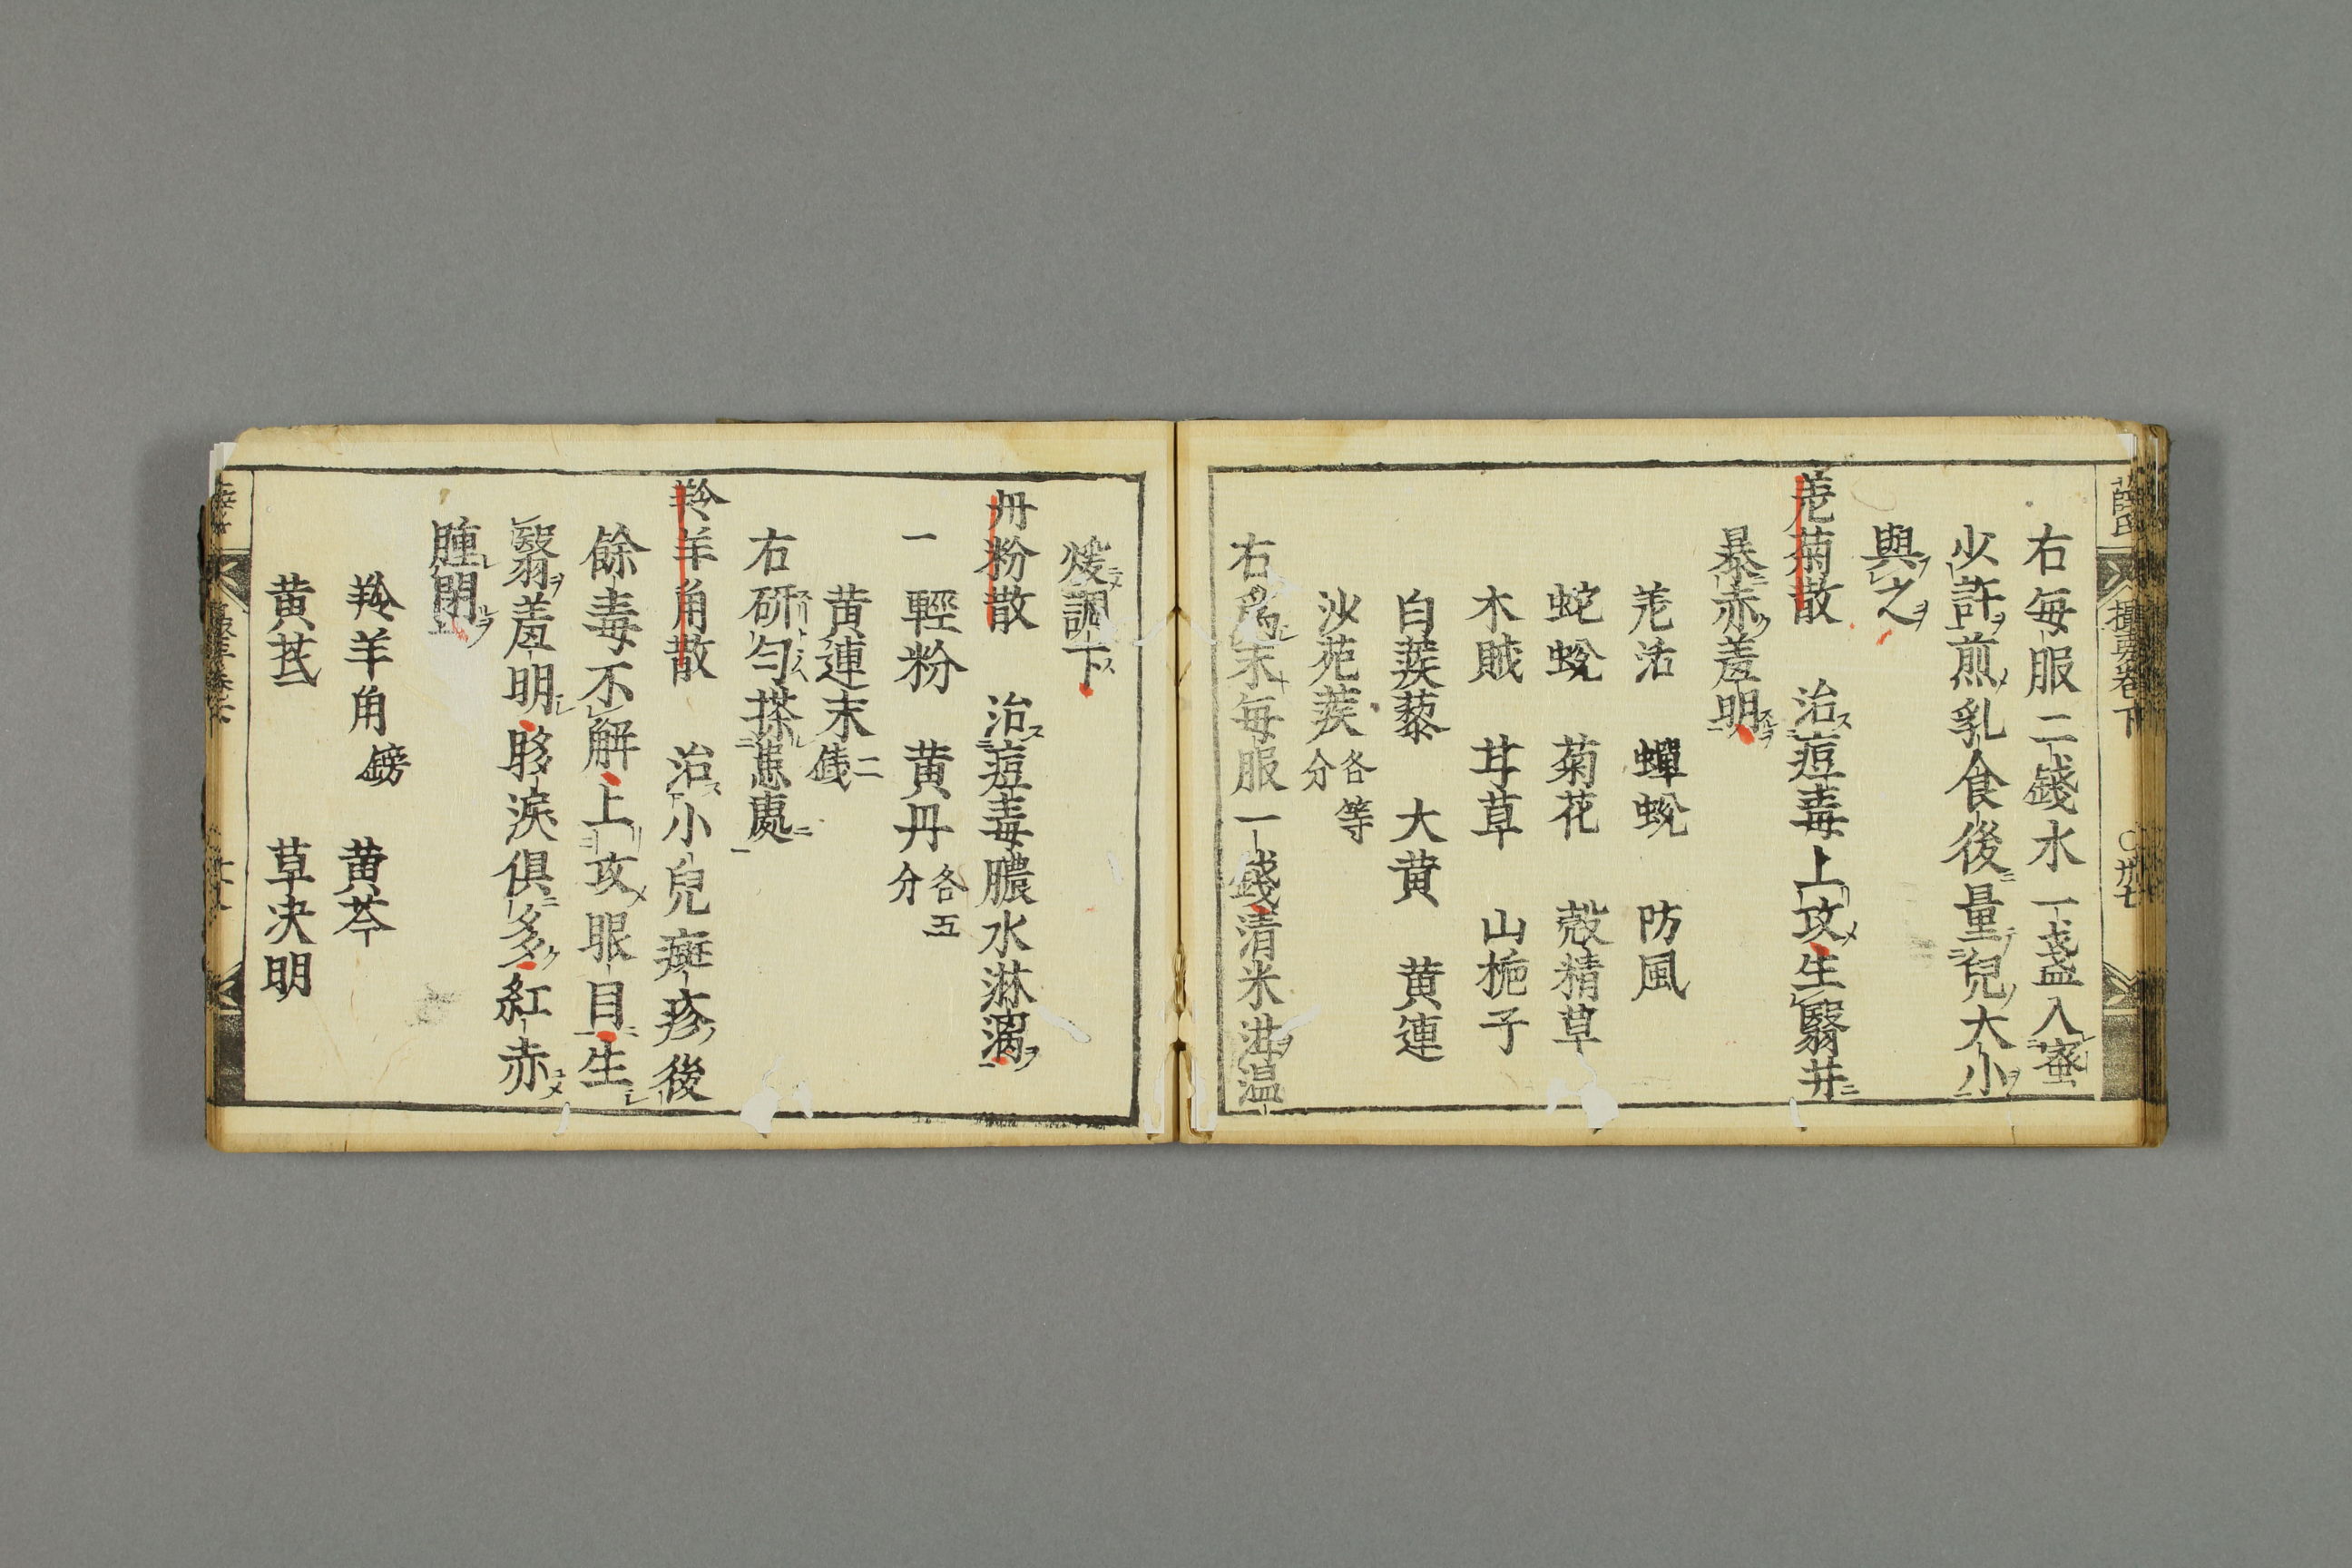 薛氏 撮要卷下 〇卅七
右每服二錢水一盞入蜜
少許煎乳食後量兒大小
與之
羌菊散 治痘毒上攻生翳并
暴赤羞明
羌活 蟬蛻 防風
蛇蛻 菊花 穀精草
木賊 甘草 山梔子
白蒺藜 大黃 黃連
沙苑蒺 各等分
右為末每服一錢清米泔温
煖調下
丹粉散 治痘毒膿水淋漓
一 輕粉 黃丹 各五分
黃連末 二錢
右研勻搽患處
羚羊角散 治小兒癍疹後
餘毒不解上攻眼目生
翳羞明眵淚俱多紅赤
腫閉
羚羊角 鎊 黃芩
黃芪 草决明